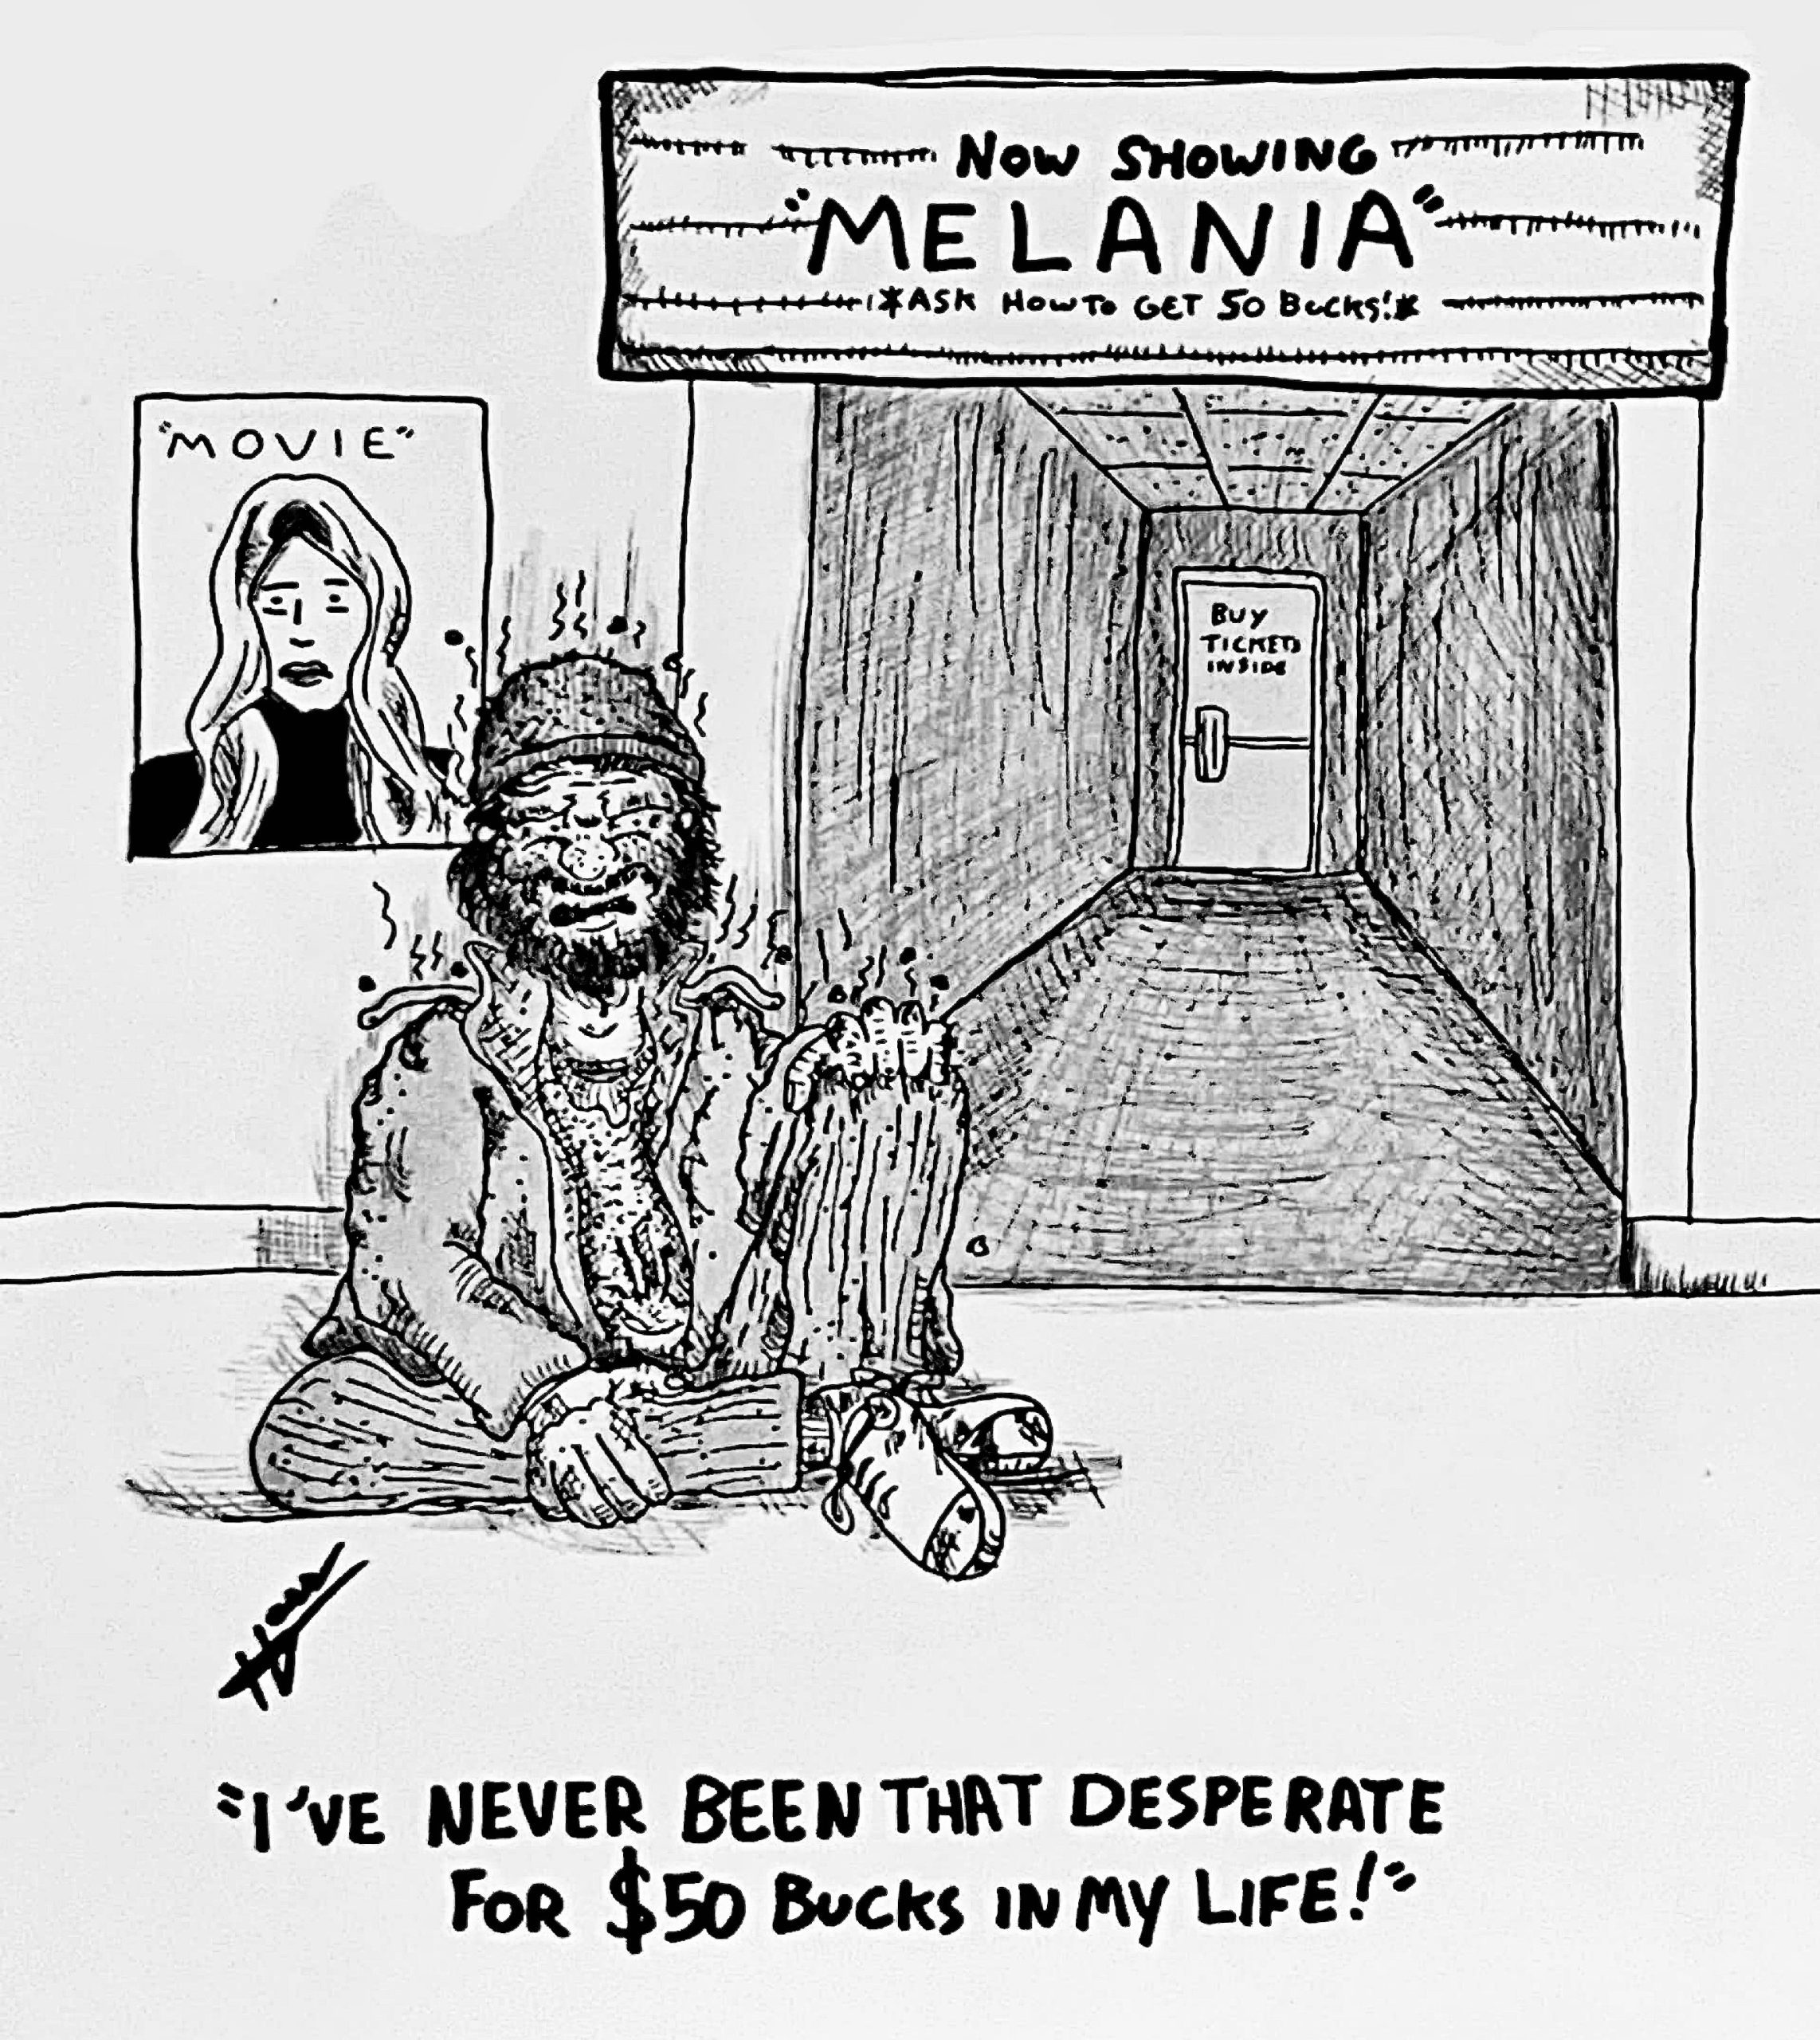 NOW SHOWING
"MELANIA"
*ASK HOW TO GET 50 BUCKS!*
"MOVIE"
BUY
TICKETS
INSIDE
"I'VE NEVER BEEN THAT DESPERATE
FOR $50 BUCKS IN MY LIFE!"